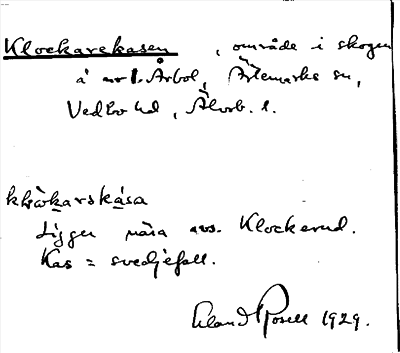 Klockarekasen, område i skogen
å nr 1. Årbol, Ärtemarks sn,
Vedbo hd, Älvb. l.
klòkarskása
Ligger nära avs. Klockerud.
Kas = svedjefall.
Erland Rosell 1929.